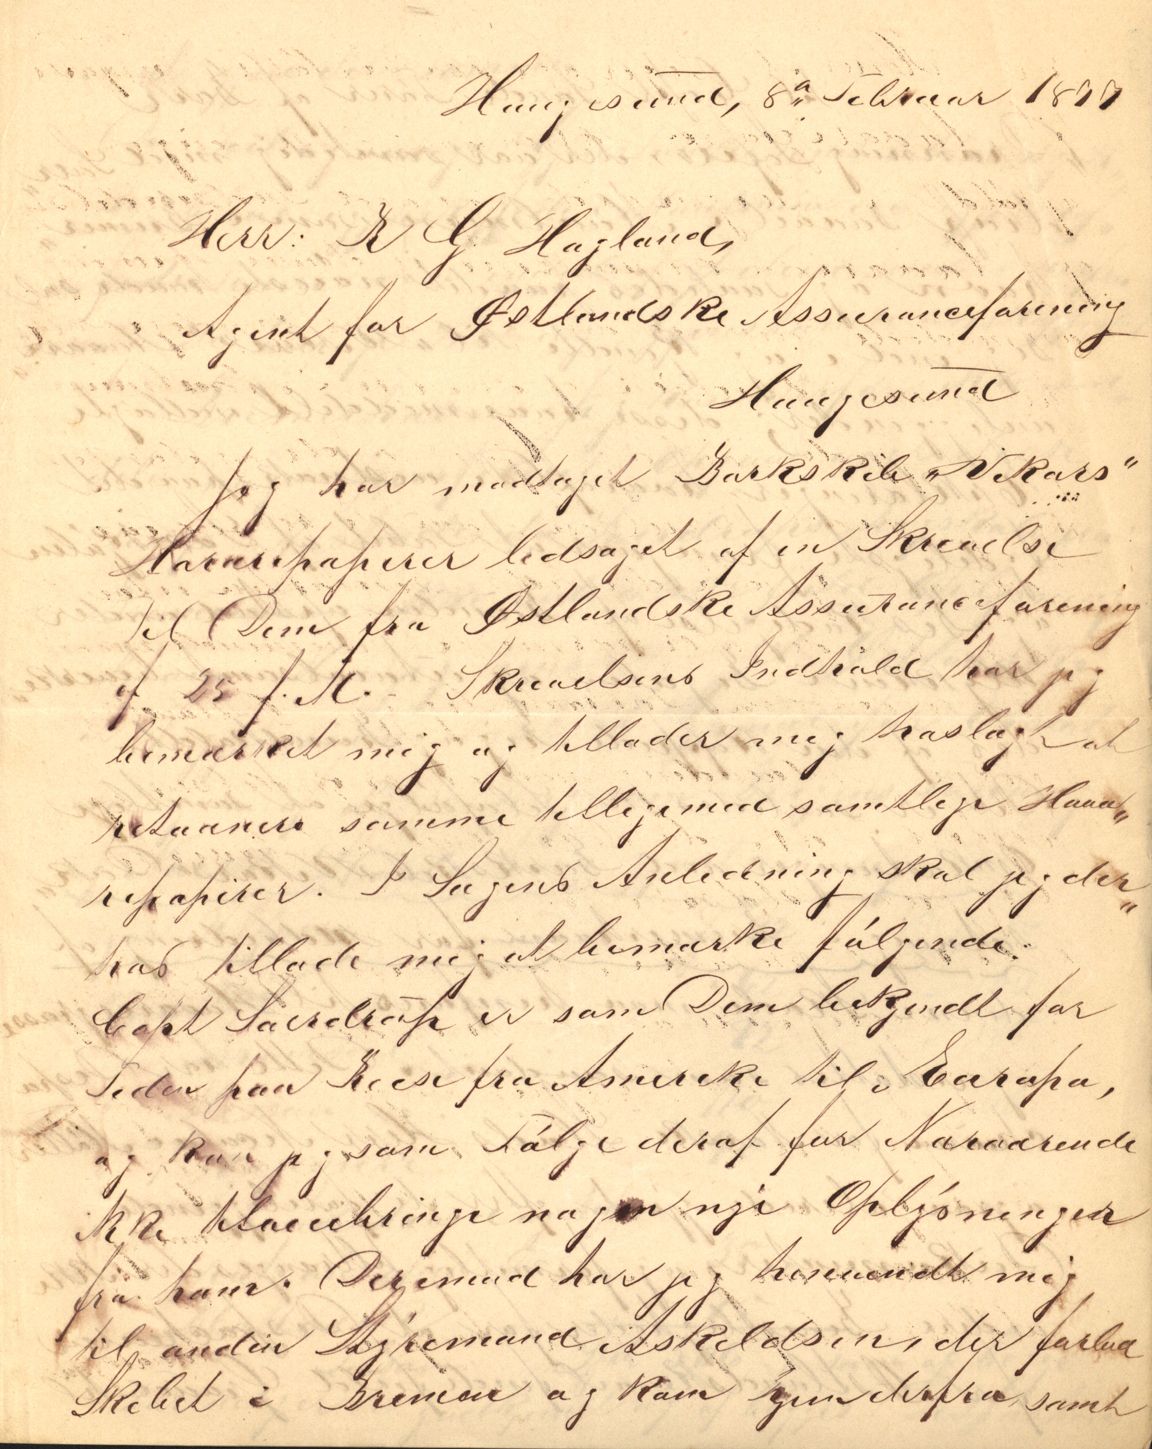 Haugesund, 8a Februar 1877
Herr: K G Hagland,
Agent for Østlandske Assuranceforening
Haugesund
Jeg har modtaget Barkskib „Vikars“
Havaripapirer ledsaget af en Skrivelse
til Dem fra Østlandske Assuranceforening
af 25 f. M. - Skrivelsens Indhold har jeg
bemærket mig og tillader mig hoslagt at
retournere samme tilligemed samtlige Hava„
ripapirer. I Sagens Anledning skal jeg der„
hos tillade mig at bemærke følgende:
Capt Sverdrup er som Dem bekjendt for
Tiden paa Reise fra Amerika til Europa,
og kan jeg som Følge deraf for Nærværende
ikke tilveiebringe nogen nye Oplysninger
fra ham. Derimod har jeg henvendt mig
til anden Styrmand Askeldsen, der forlod
Skibet i Bremen og kom hjem derfra, samt